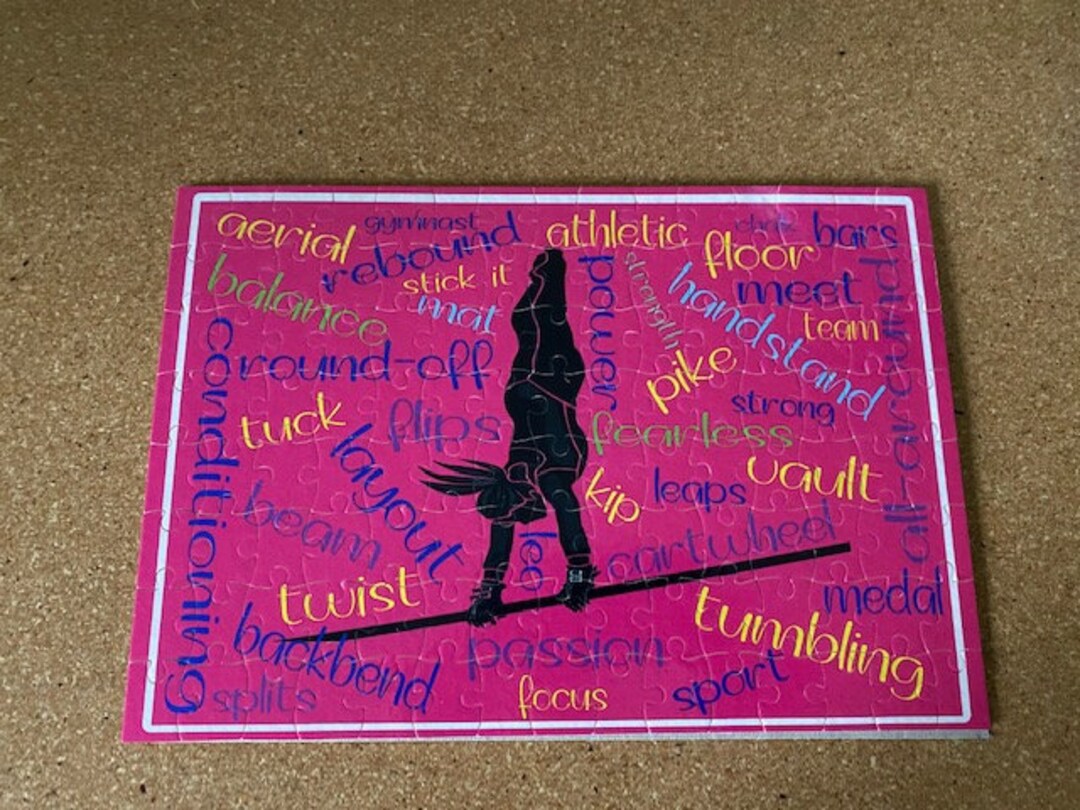 aerial
gymnast
athletic
chalk
bars
rebound
floor
balance
stick it
power
strength
handstand
meet
mat
team
all-around
conditioning
round-off
pike
tuck
flips
strong
fearless
layout
kip
leaps
vault
beam
leo
cartwheel
twist
medal
backbend
passion
tumbling
splits
focus
sport